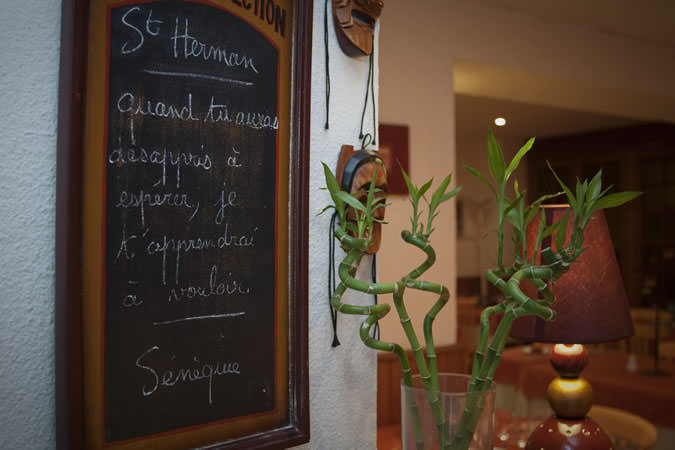 ECTION
St Herman
quand tu auras
désappris à
espérer, je
t'apprendrai
à vouloir
Sénèque